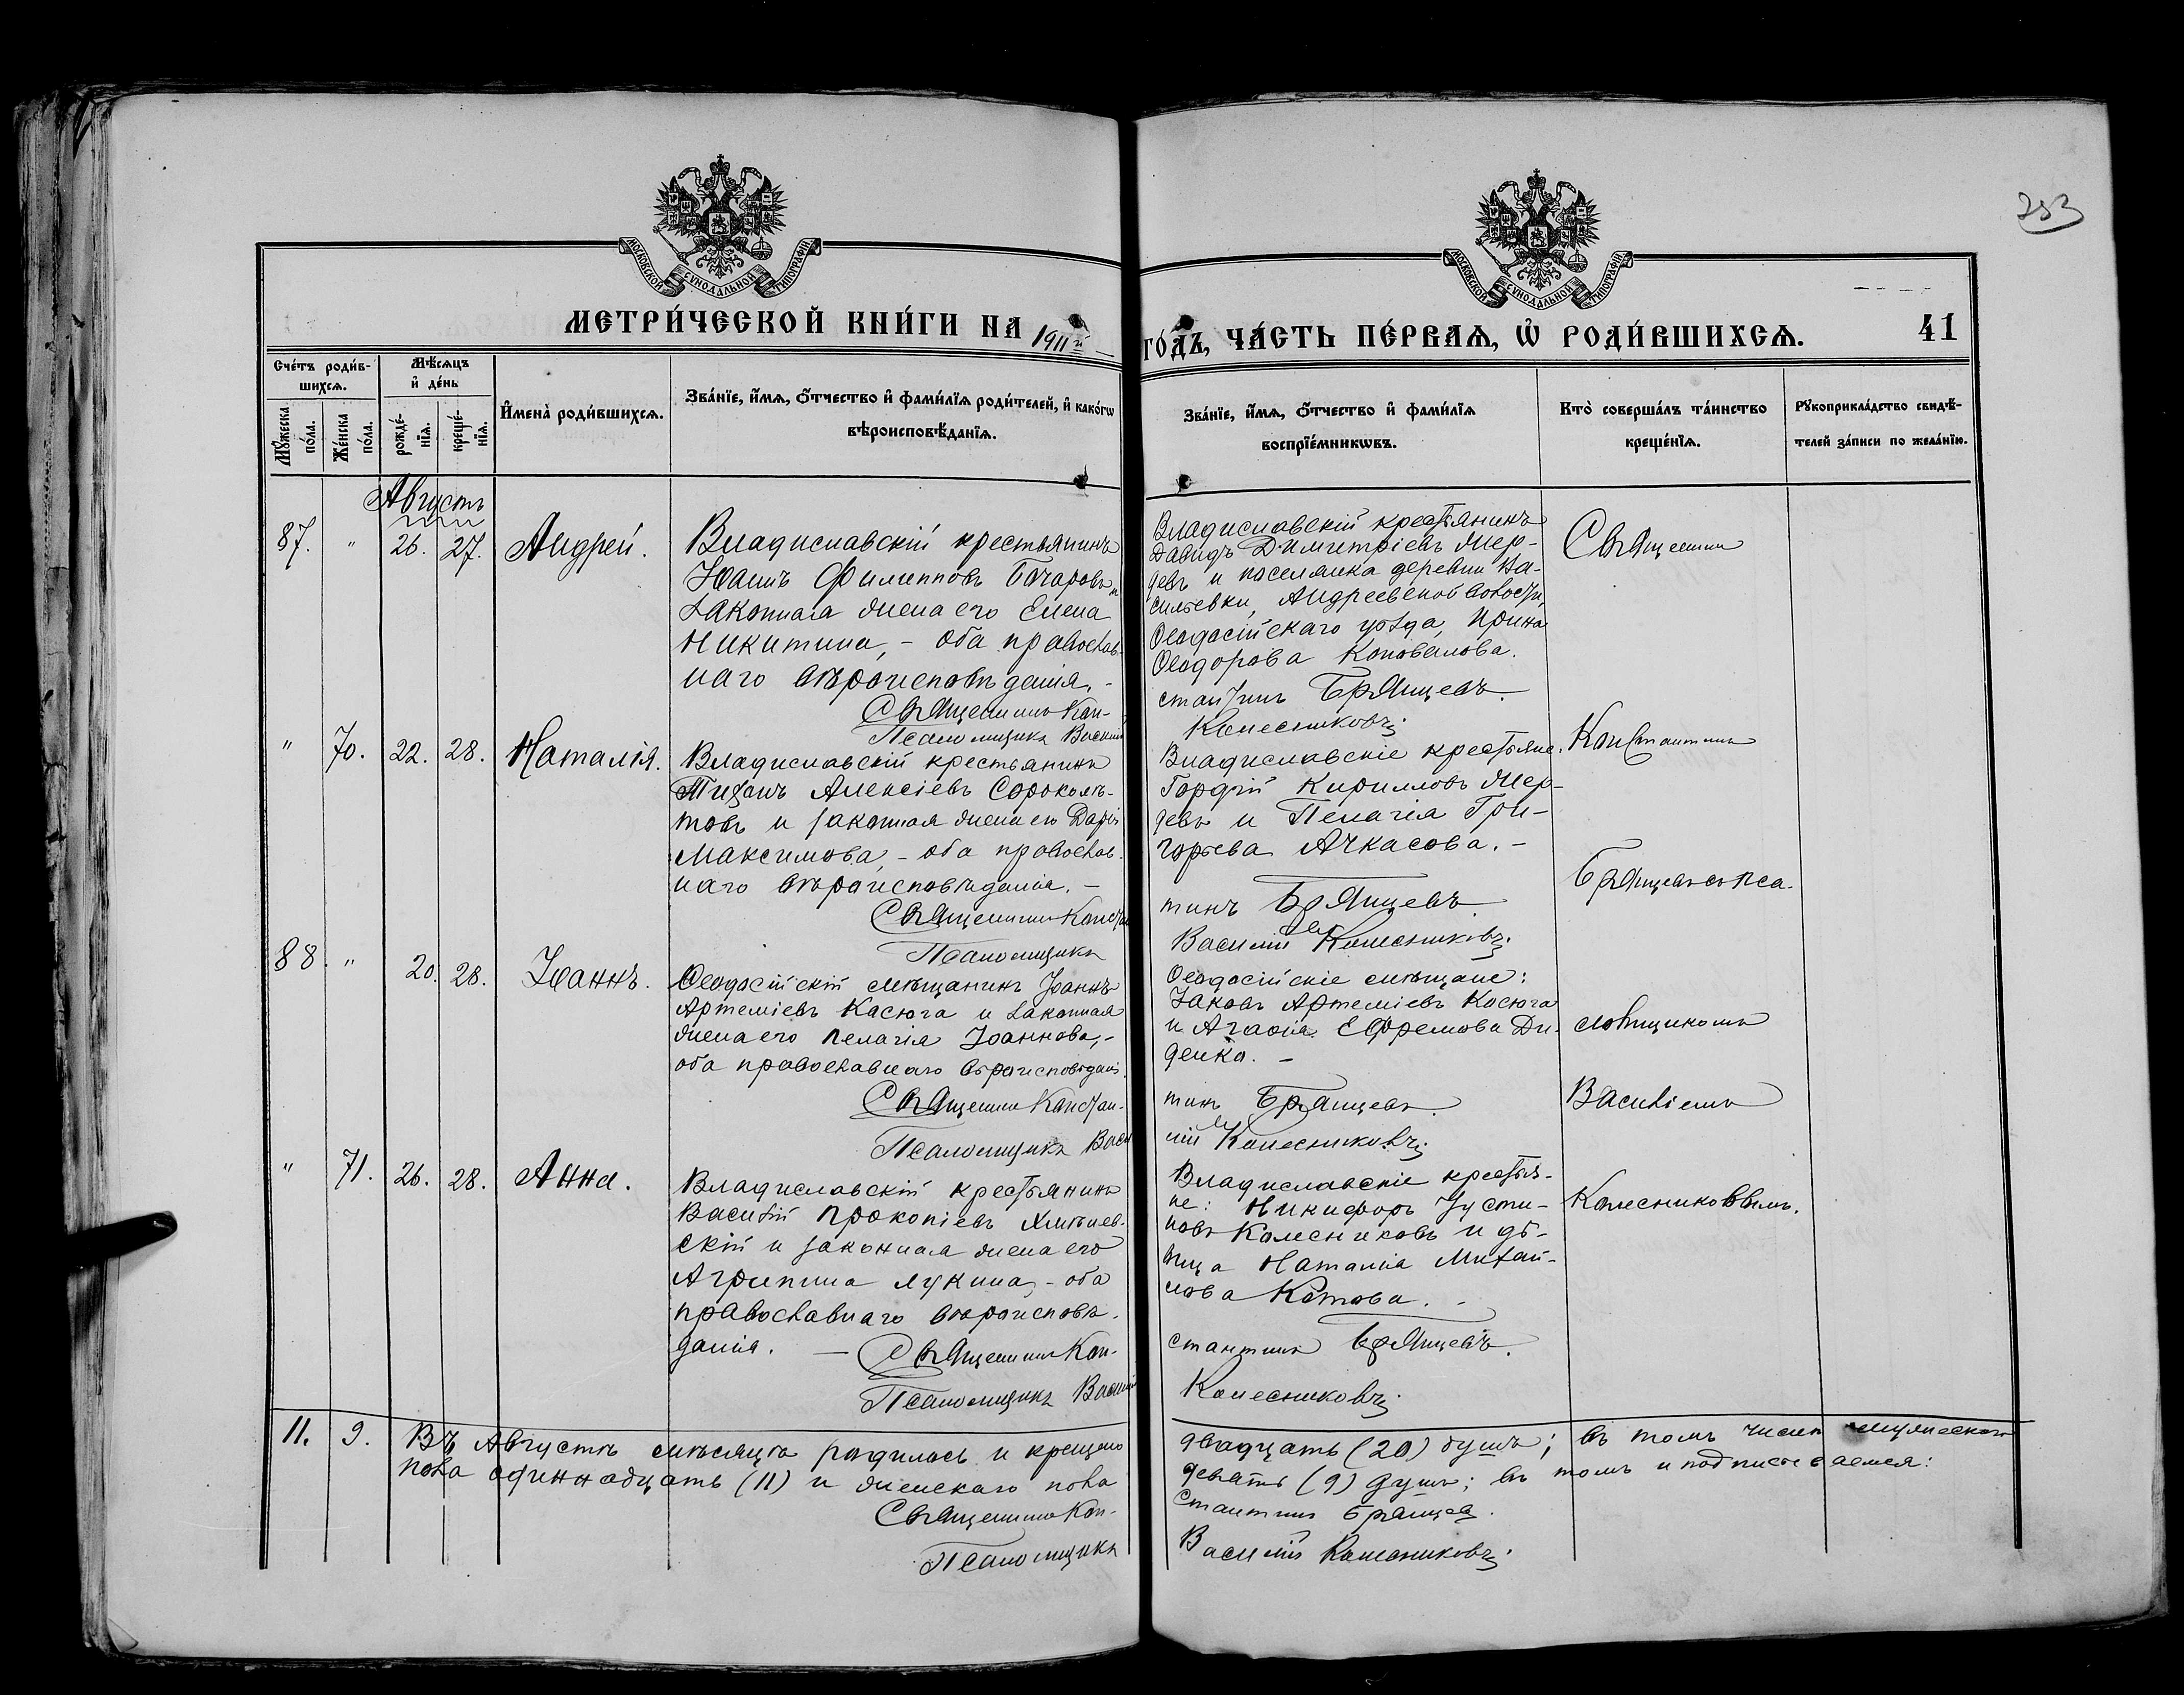 253
МОСКОВСКОЙ СУНОДАЛЬНОЙ ТИПОГРАФІИ
МОСКОВСКОЙ СУНОДАЛЬНОЙ ТИПОГРАФІИ
МЕТРИ́ЧЕСКОЙ КНИ́ГИ НА 1911й
ГО́ДЪ, ЧА́СТЬ ПЕ́РВАѦ, Ѡ҆ РОДИ́ВШИХСѦ.
41
Сче́тъ роди́в-
шихсѧ.
Мꙋ́жеска по́ла.
Же́нска по́ла.
Мѣ́сѧцъ
и҆ де́нь
рожде́-
нїѧ.
креще́-
нїѧ.
И҆мена̀ роди́вшихсѧ.
Зва́нїе, и҆́мѧ, ѻ҆́тчество и҆ фами́лїѧ роди́телей, и҆ како́гѡ
вѣроисповѣ́данїѧ.
Зва́нїе, и҆́мѧ, ѻ҆́тчество и҆ фами́лїѧ
воспрїе́мникѡвъ.
Кто̀ соверша́лъ та́инство
креще́нїѧ.
Рꙋкоприкла́дство свидѣ́-
телей за́писи по жела́нїю.
Августъ
87. " 26. 27. Андрей.
Владиславскій крестьянинъ
Іоаннъ Филипповъ Бочаровъ и
законная жена его Елена
Никитина, - оба православ-
наго вѣроисповѣданія. -
Священникъ Кон-
Псаломщикъ Василій
Владиславскій крестьянинъ
Давидъ Димитріевъ Мер-
девъ и поселянка деревни Ва-
сильевки, Андреевской волости,
Ѳеодосійскаго уѣзда, Ирина
Ѳеодорова Коновалова.
стантинъ Брянцевъ.
Колесниковъ.
" 70. 22. 28. Наталія.
Владиславскій крестьянинъ
Тихонъ Алексіевъ Сороколѣ-
товъ и законная жена его Дарія
Максимова, - оба православ-
наго вѣроисповѣданія. -
Священникъ Констан
Псаломщикъ
Владиславскіе крестьяне:
Гордій Кирилловъ Мер-
девъ и Пелагія Гри-
горьева Ачкасова. -
тинъ Брянцевъ.
Василій Колесниковъ.
88. " 20. 28. Іоаннъ.
Ѳеодосійскій мѣщанинъ Іоаннъ
Артеміевъ Касюга и законная
жена его Пелагія Іоаннова, -
оба православнаго вѣроисповѣданія.
Священникъ Констан-
Псаломщикъ Васи
Ѳеодосійскіе мѣщане:
Іаковъ Артеміевъ Касюга
и Агаѳія Ефремова Ди-
денко. -
тинъ Брянцевъ.
лій Колесниковъ.
" 71. 26. 28. Анна.
Владиславскій крестьянинъ
Василій Прокопіевъ Хмѣлев-
скій и законная жена его
Агрипина Лукина, - оба
православнаго вѣроисповѣ-
данія. - Священникъ Кон-
Псаломщикъ Василій
Владиславскіе крестья-
не: Никифоръ Іусти-
новъ Колесниковъ и дѣ-
вица Наталія Михай-
лова Котова. -
стантинъ Брянцевъ.
Колесниковъ.
Священникъ
Константинъ
Брянцевъ съ пса-
ломщикомъ
Василіемъ
Колесниковымъ.
11. 9. Въ Августѣ мѣсяцѣ родилось и крещено двадцать (20) душъ; въ томъ числѣ мужескаго
пола одиннадцать (11) и женскаго пола девять (9) душъ; въ томъ и подписываемся:
Священникъ Кон-
стантинъ Брянцев.
Псаломщикъ
Василій Колесниковъ.